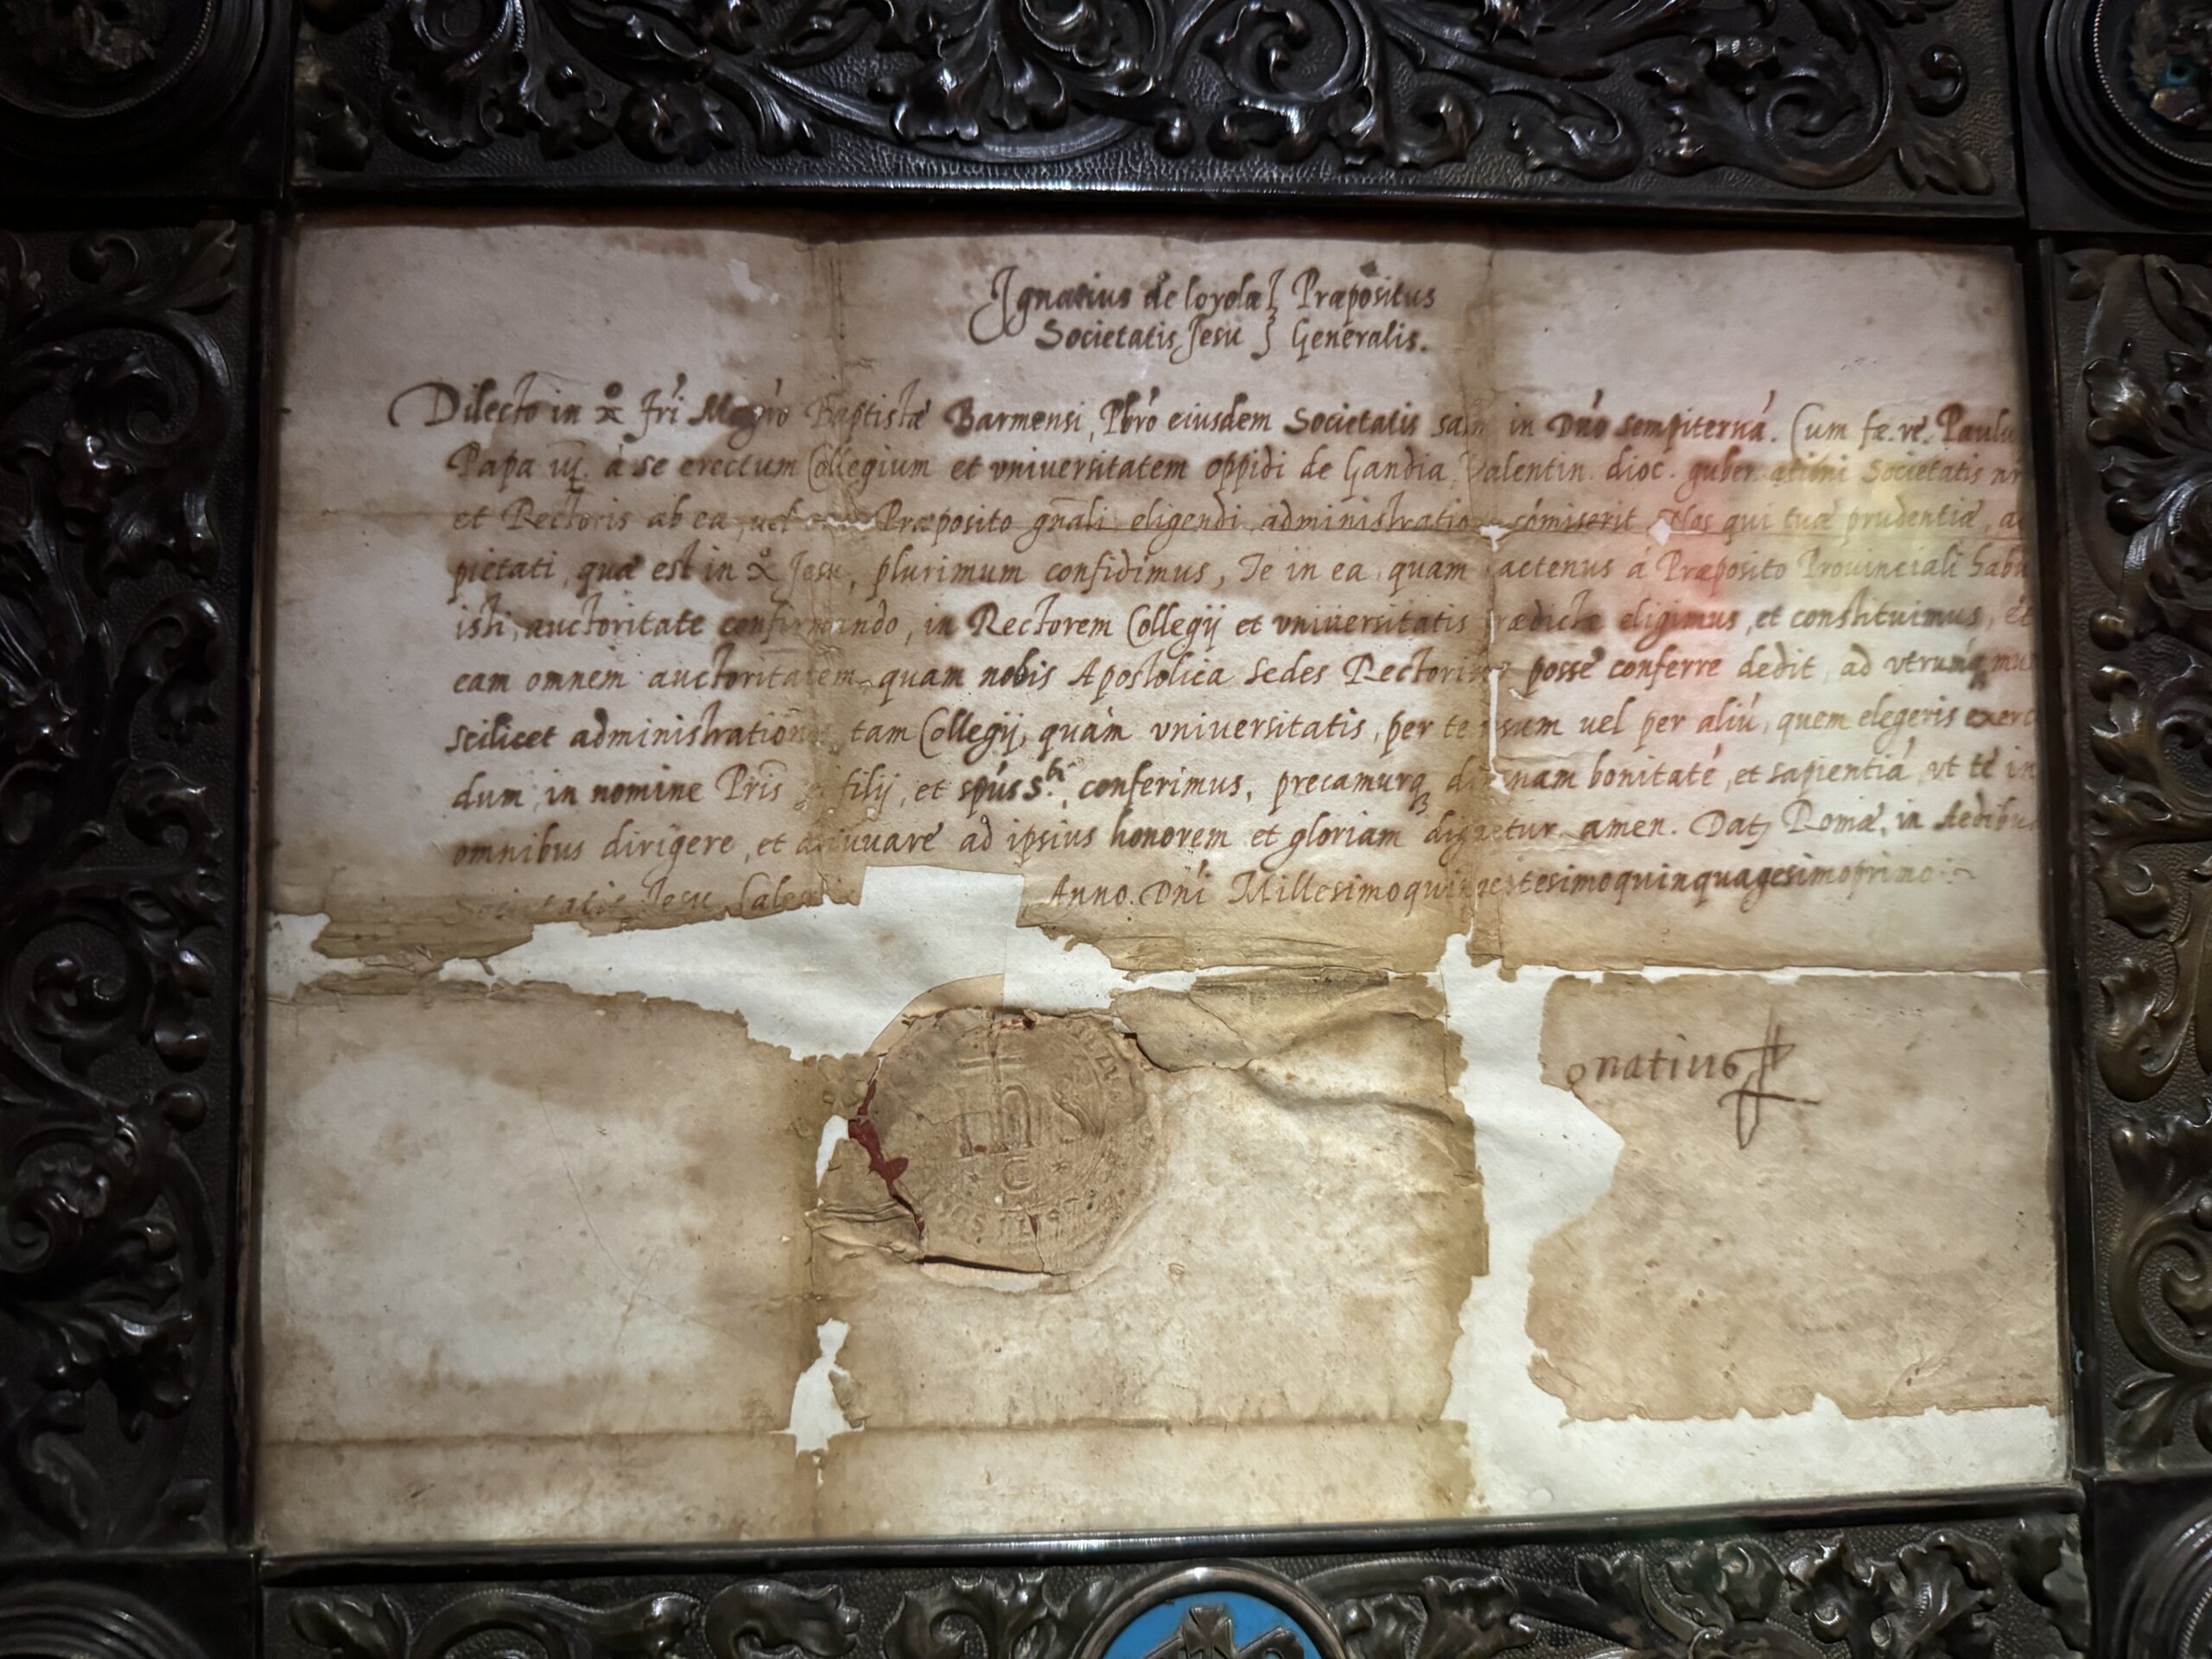 Ignatius de loyola } Præpositus
Societatis Jesu } Generalis.
Dilecto in fri Magro Baptistæ Barmensi, Pbro eiusdem Societatis in Dno sempiterná. Cum fæ. re. Paulu
Papa iij. á se erectum Collegium et vniversitatem oppidi de Gandia, Valentin. dioc. Societatis
et Rectoris ab ea, uel Præposito gnali eligendi, administratio cómiserit Nos qui tuæ prudentiæ, a
pietati, quæ est in Jesu, plurimum confidimus, Te in ea, quam actenus á Præposito Prouinciali habu
isti, auctoritate confirmando, in Rectorem Collegij et vniuersitatis rædictæ eligimus, et constituimus, et
eam omnem auctoritatem, quam nobis Apostolica Sedes posse conferre dedit, ad vtrunq mu
scilicet tam Collegij, quám vniuersitatis, per te sum uel per aliú, quem elegeris exerc
dum, in nomine Pris filij, et spús S.ti, conferimus, precamurq nam bonitaté, et sapientiá, vt te in
omnibus dirigere, et adiuuare ad ipsius honorem et gloriam dignetur. amen. Dat. Romæ, in Aedibu
Societatis Jesu Anno. Dni Millesimoquingentesimoquinquagesimoprimo.
gnatius
ihs